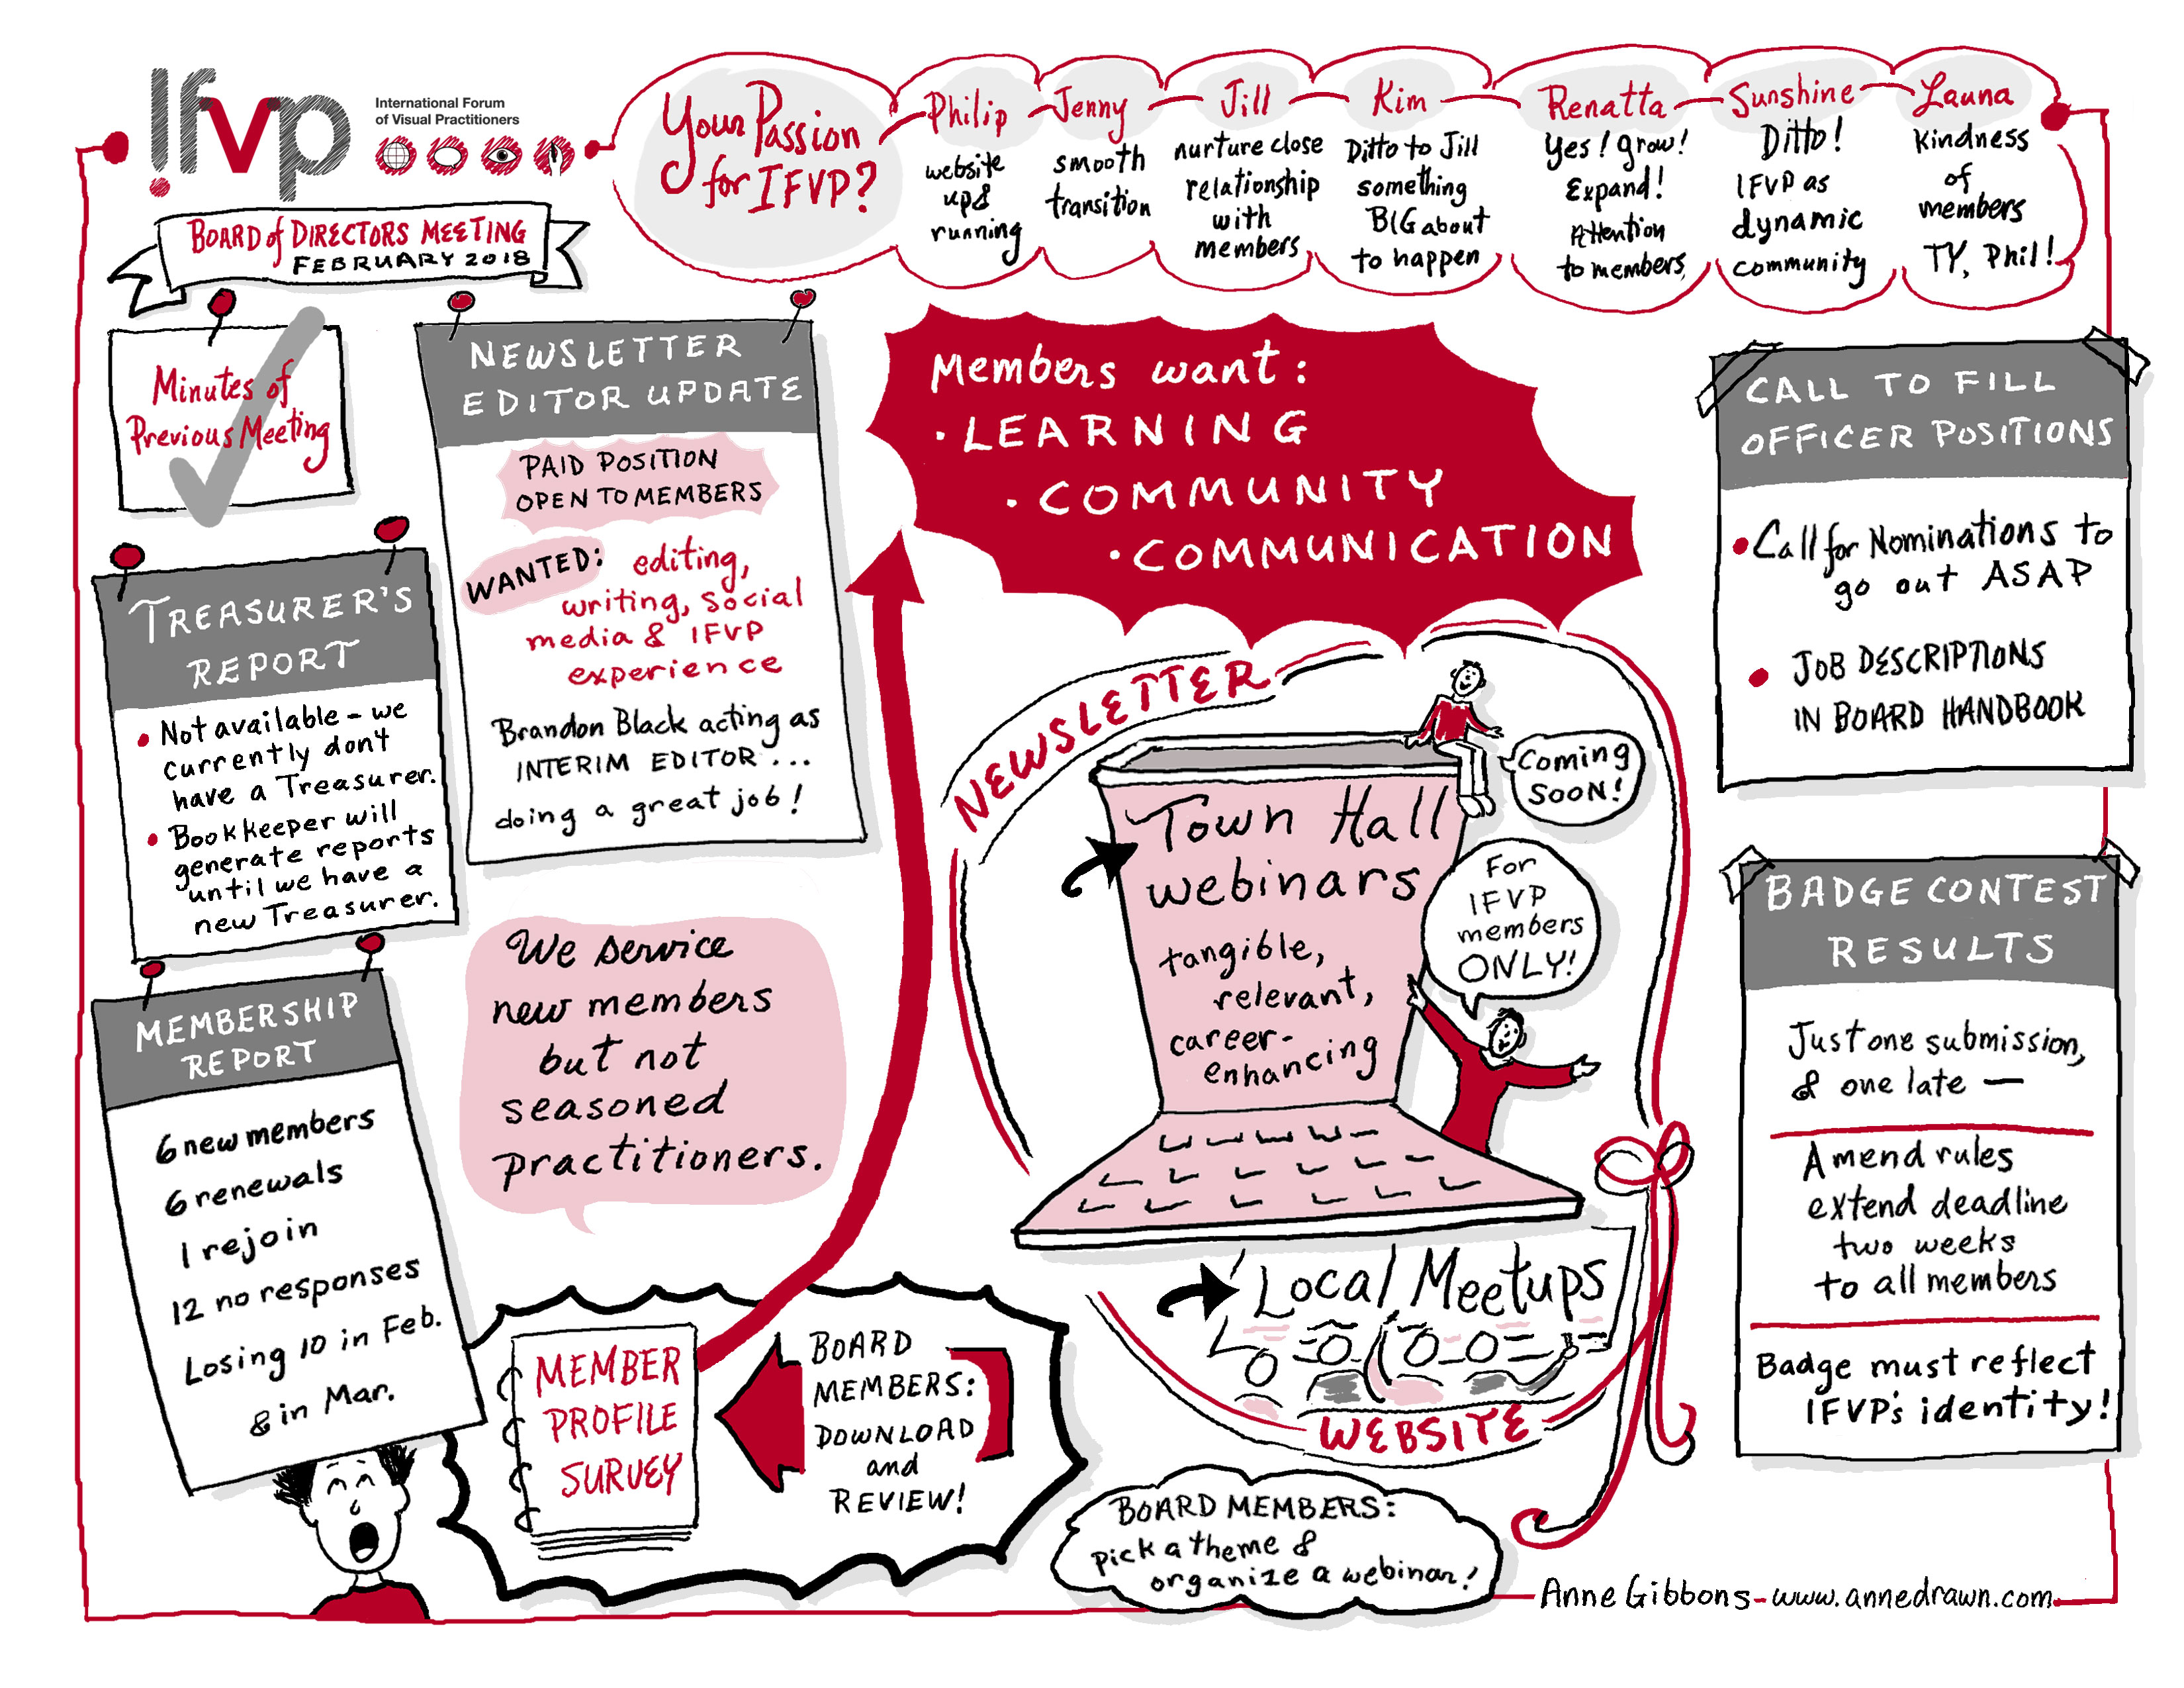 Ifvp
International Forum
of Visual Practitioners
BOARD of DIRECTORS MEETING
FEBRUARY 2018
Your Passion
for IFVP?
Philip
website
up &
running
Jenny
smooth
transition
Jill
nurture close
relationship
with
members
Kim
Ditto to Jill
something
BIG about
to happen
Renatta
Yes! grow!
Expand!
Attention
to members
Sunshine
Ditto!
IFVP as
dynamic
community
Launa
Kindness
of
members
TY, Phil!
Minutes of
Previous Meeting
TREASURER'S
REPORT
• Not available - we
currently don't
have a Treasurer.
• Bookkeeper will
generate reports
until we have a
new Treasurer.
MEMBERSHIP
REPORT
6 new members
6 renewals
1 rejoin
12 no responses
Losing 10 in Feb.
& in Mar.
NEWSLETTER
EDITOR UPDATE
PAID POSITION
OPEN TO MEMBERS
WANTED: editing,
writing, social
media & IFVP
experience
Brandon Black acting as
INTERIM EDITOR...
doing a great job!
We service
new members
but not
seasoned
practitioners.
MEMBER
PROFILE
SURVEY
BOARD
MEMBERS:
DOWNLOAD
and
REVIEW!
Members want:
• LEARNING
• COMMUNITY
• COMMUNICATION
NEWSLETTER
Coming
SOON!
Town Hall
webinars
tangible,
relevant,
career-
enhancing
For
IFVP
members
ONLY!
Local Meetups
WEBSITE
BOARD MEMBERS:
pick a theme &
organize a webinar!
CALL TO FILL
OFFICER POSITIONS
• Call for Nominations to
go out ASAP
• JOB DESCRIPTIONS
IN BOARD HANDBOOK
BADGE CONTEST
RESULTS
Just one submission,
& one late —
Amend rules
extend deadline
two weeks
to all members
Badge must reflect
IFVP's identity!
Anne Gibbons - www.annedrawn.com